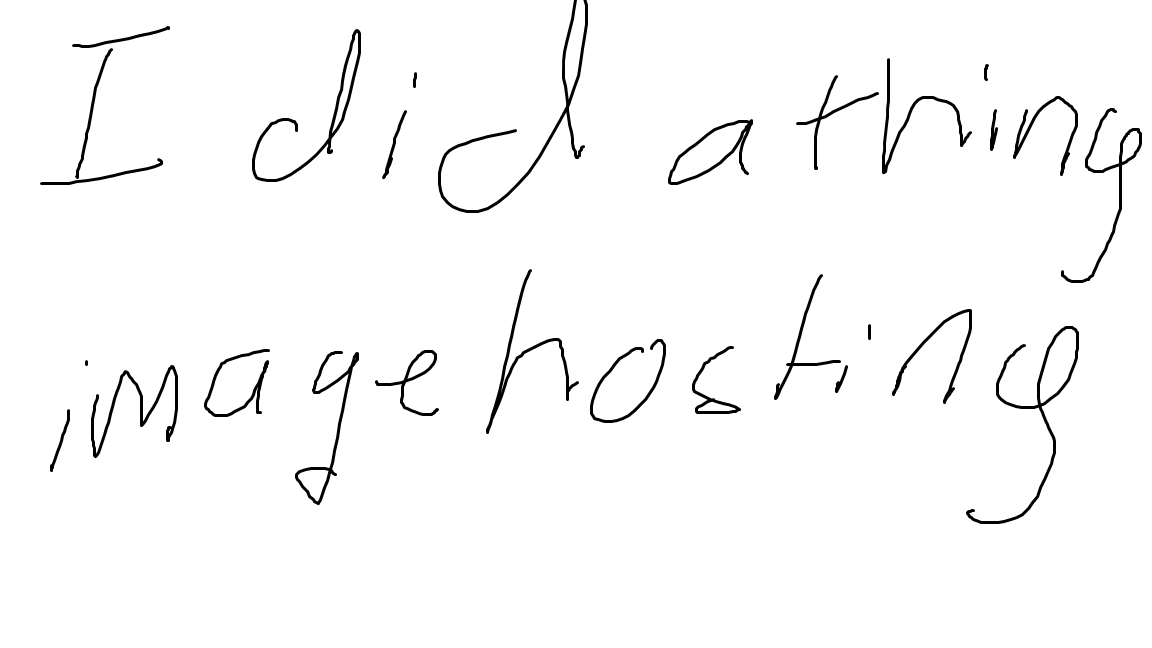 I did a thing
imagehosting